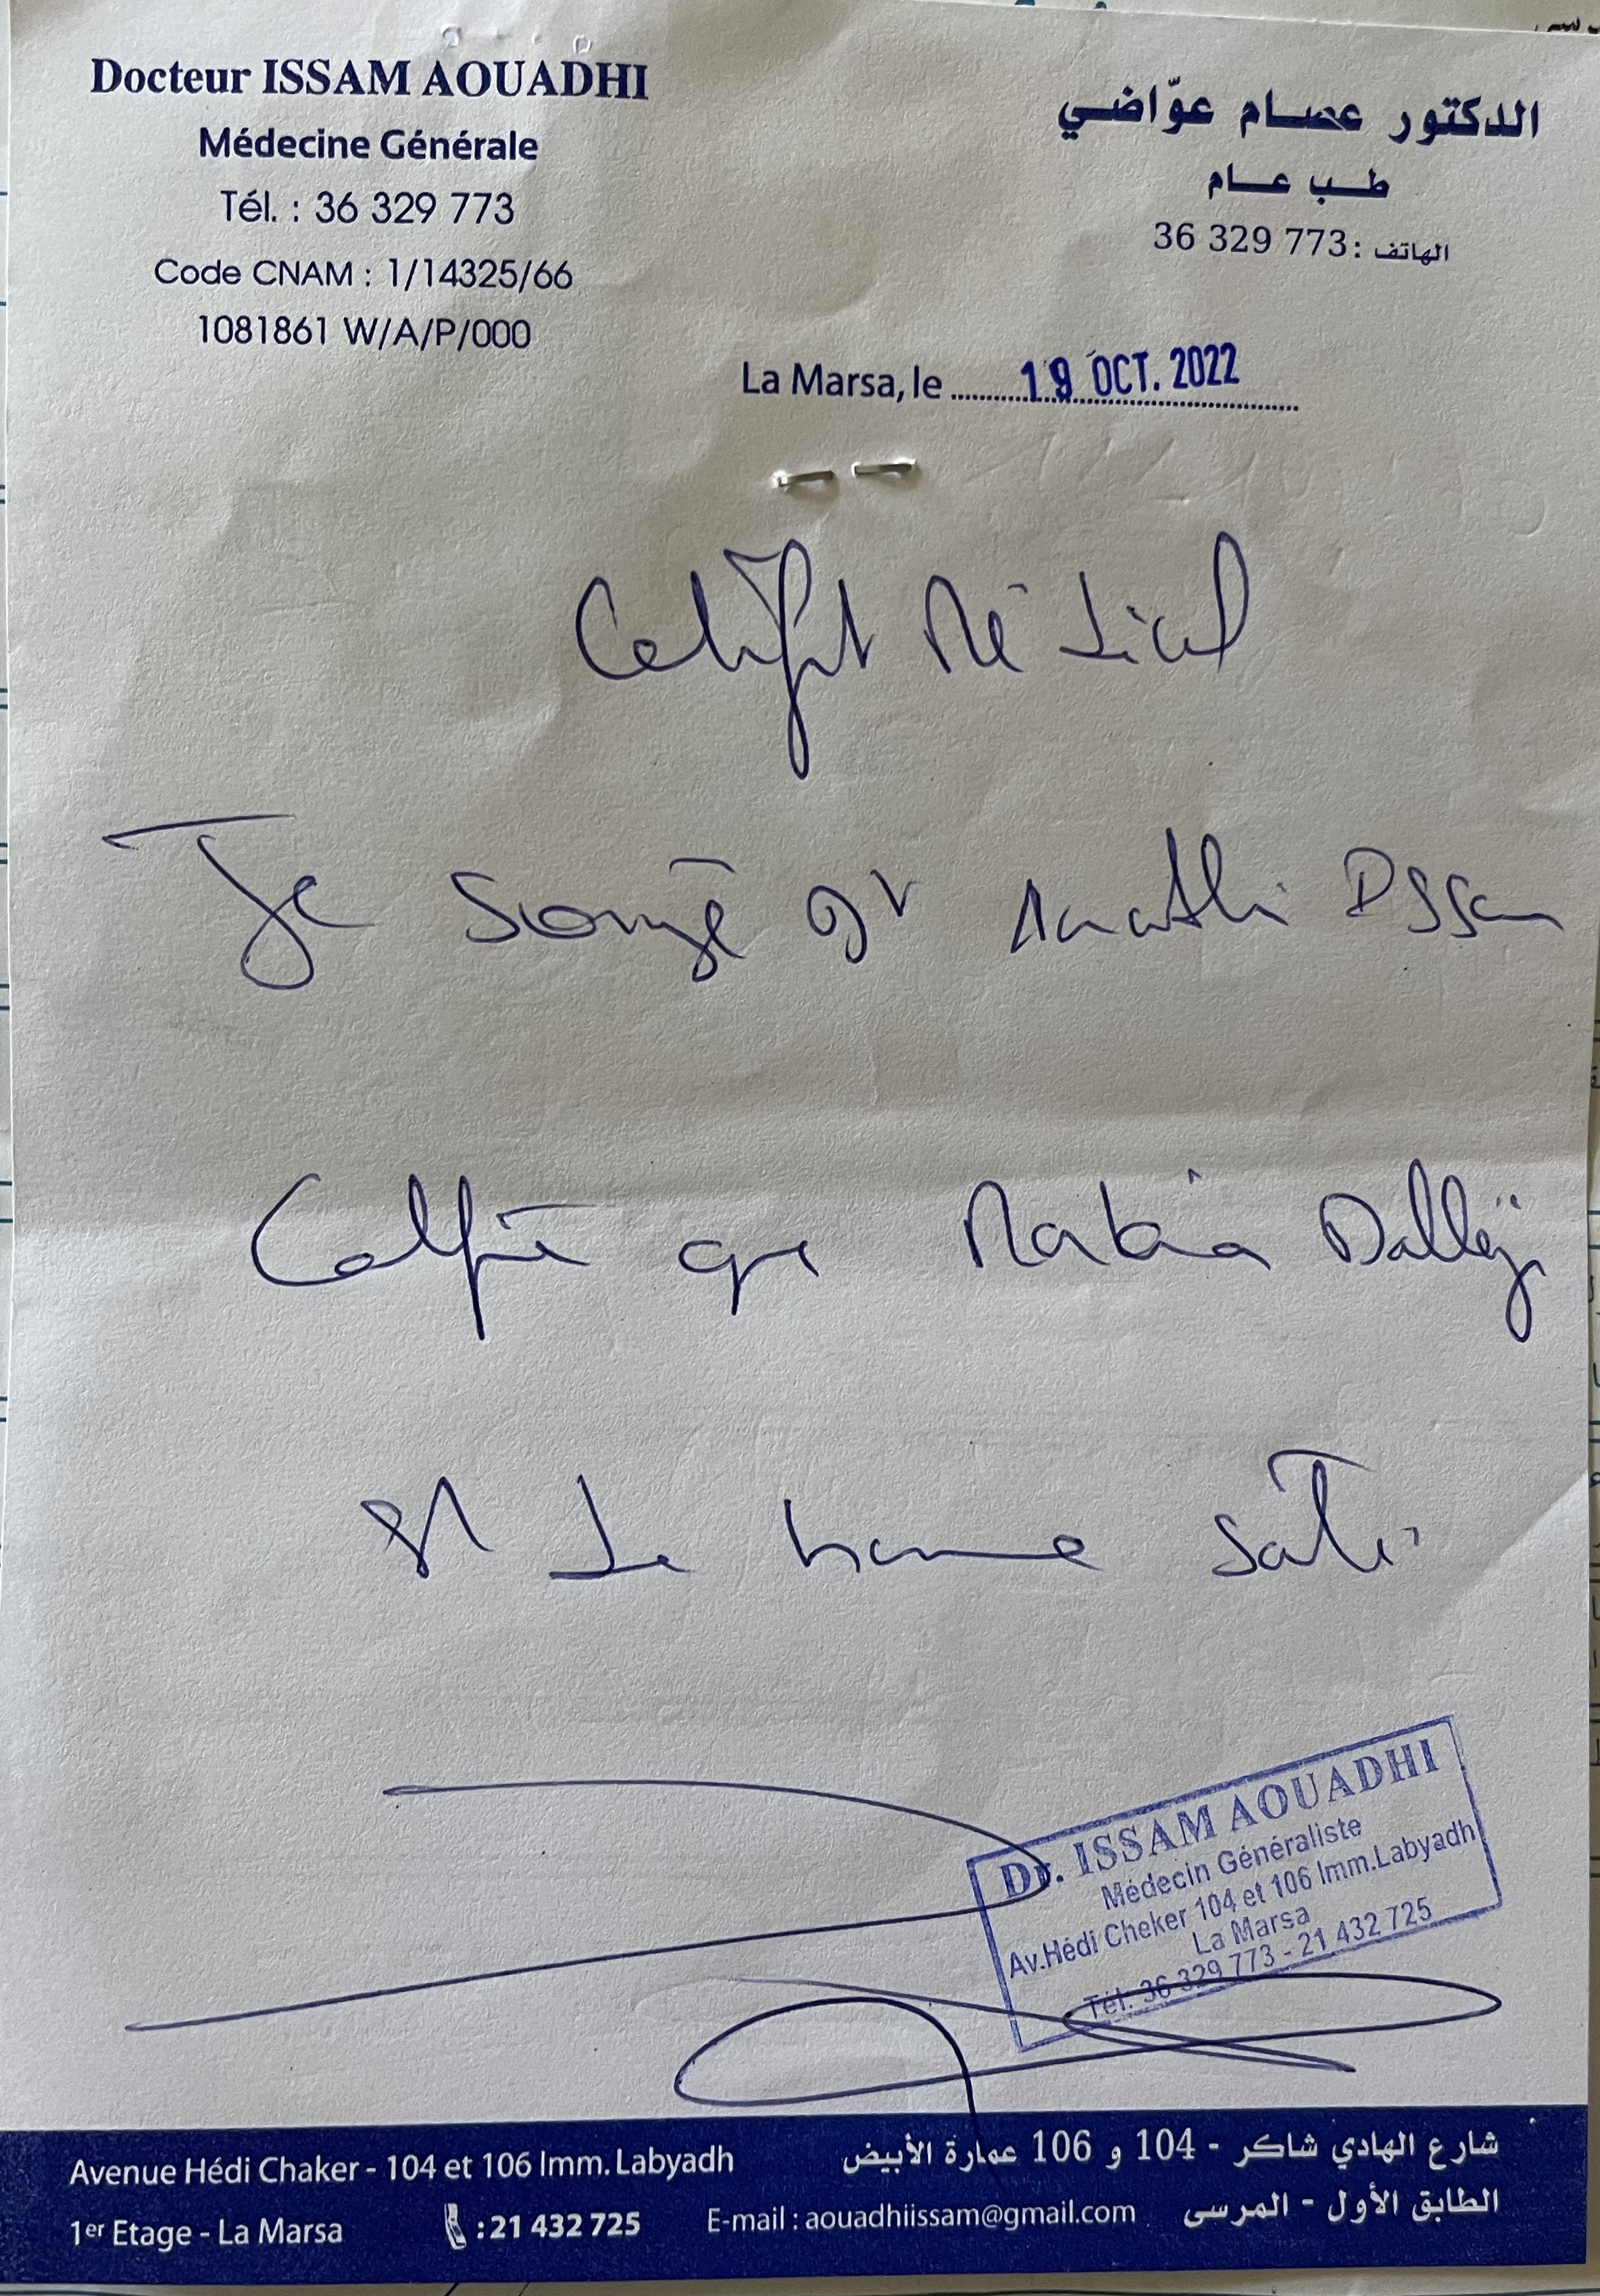 Docteur ISSAM AOUADHI
Médecine Générale
Tél. : 36 329 773
Code CNAM : 1/14325/66
1081861 W/A/P/000
الدكتور عصام عوّاضي
طب عام
الهاتف : 36 329 773
La Marsa, le 19 OCT. 2022
Certificat Médical
Je soussigné Dr Aouadhi Issam
Certifie que Dallegi
est de bonne santé
Dr. ISSAM AOUADHI
Médecin Généraliste
Av.Hédi Cheker 104 et 106 Imm.Labyadh
La Marsa
Tél: 36 329 773 - 21 432 725
Avenue Hédi Chaker - 104 et 106 Imm. Labyadh
1er Etage - La Marsa
: 21 432 725
E-mail : aouadhiissam@gmail.com
شارع الهادي شاكر - 104 و 106 عمارة الأبيض
الطابق الأول - المرسى